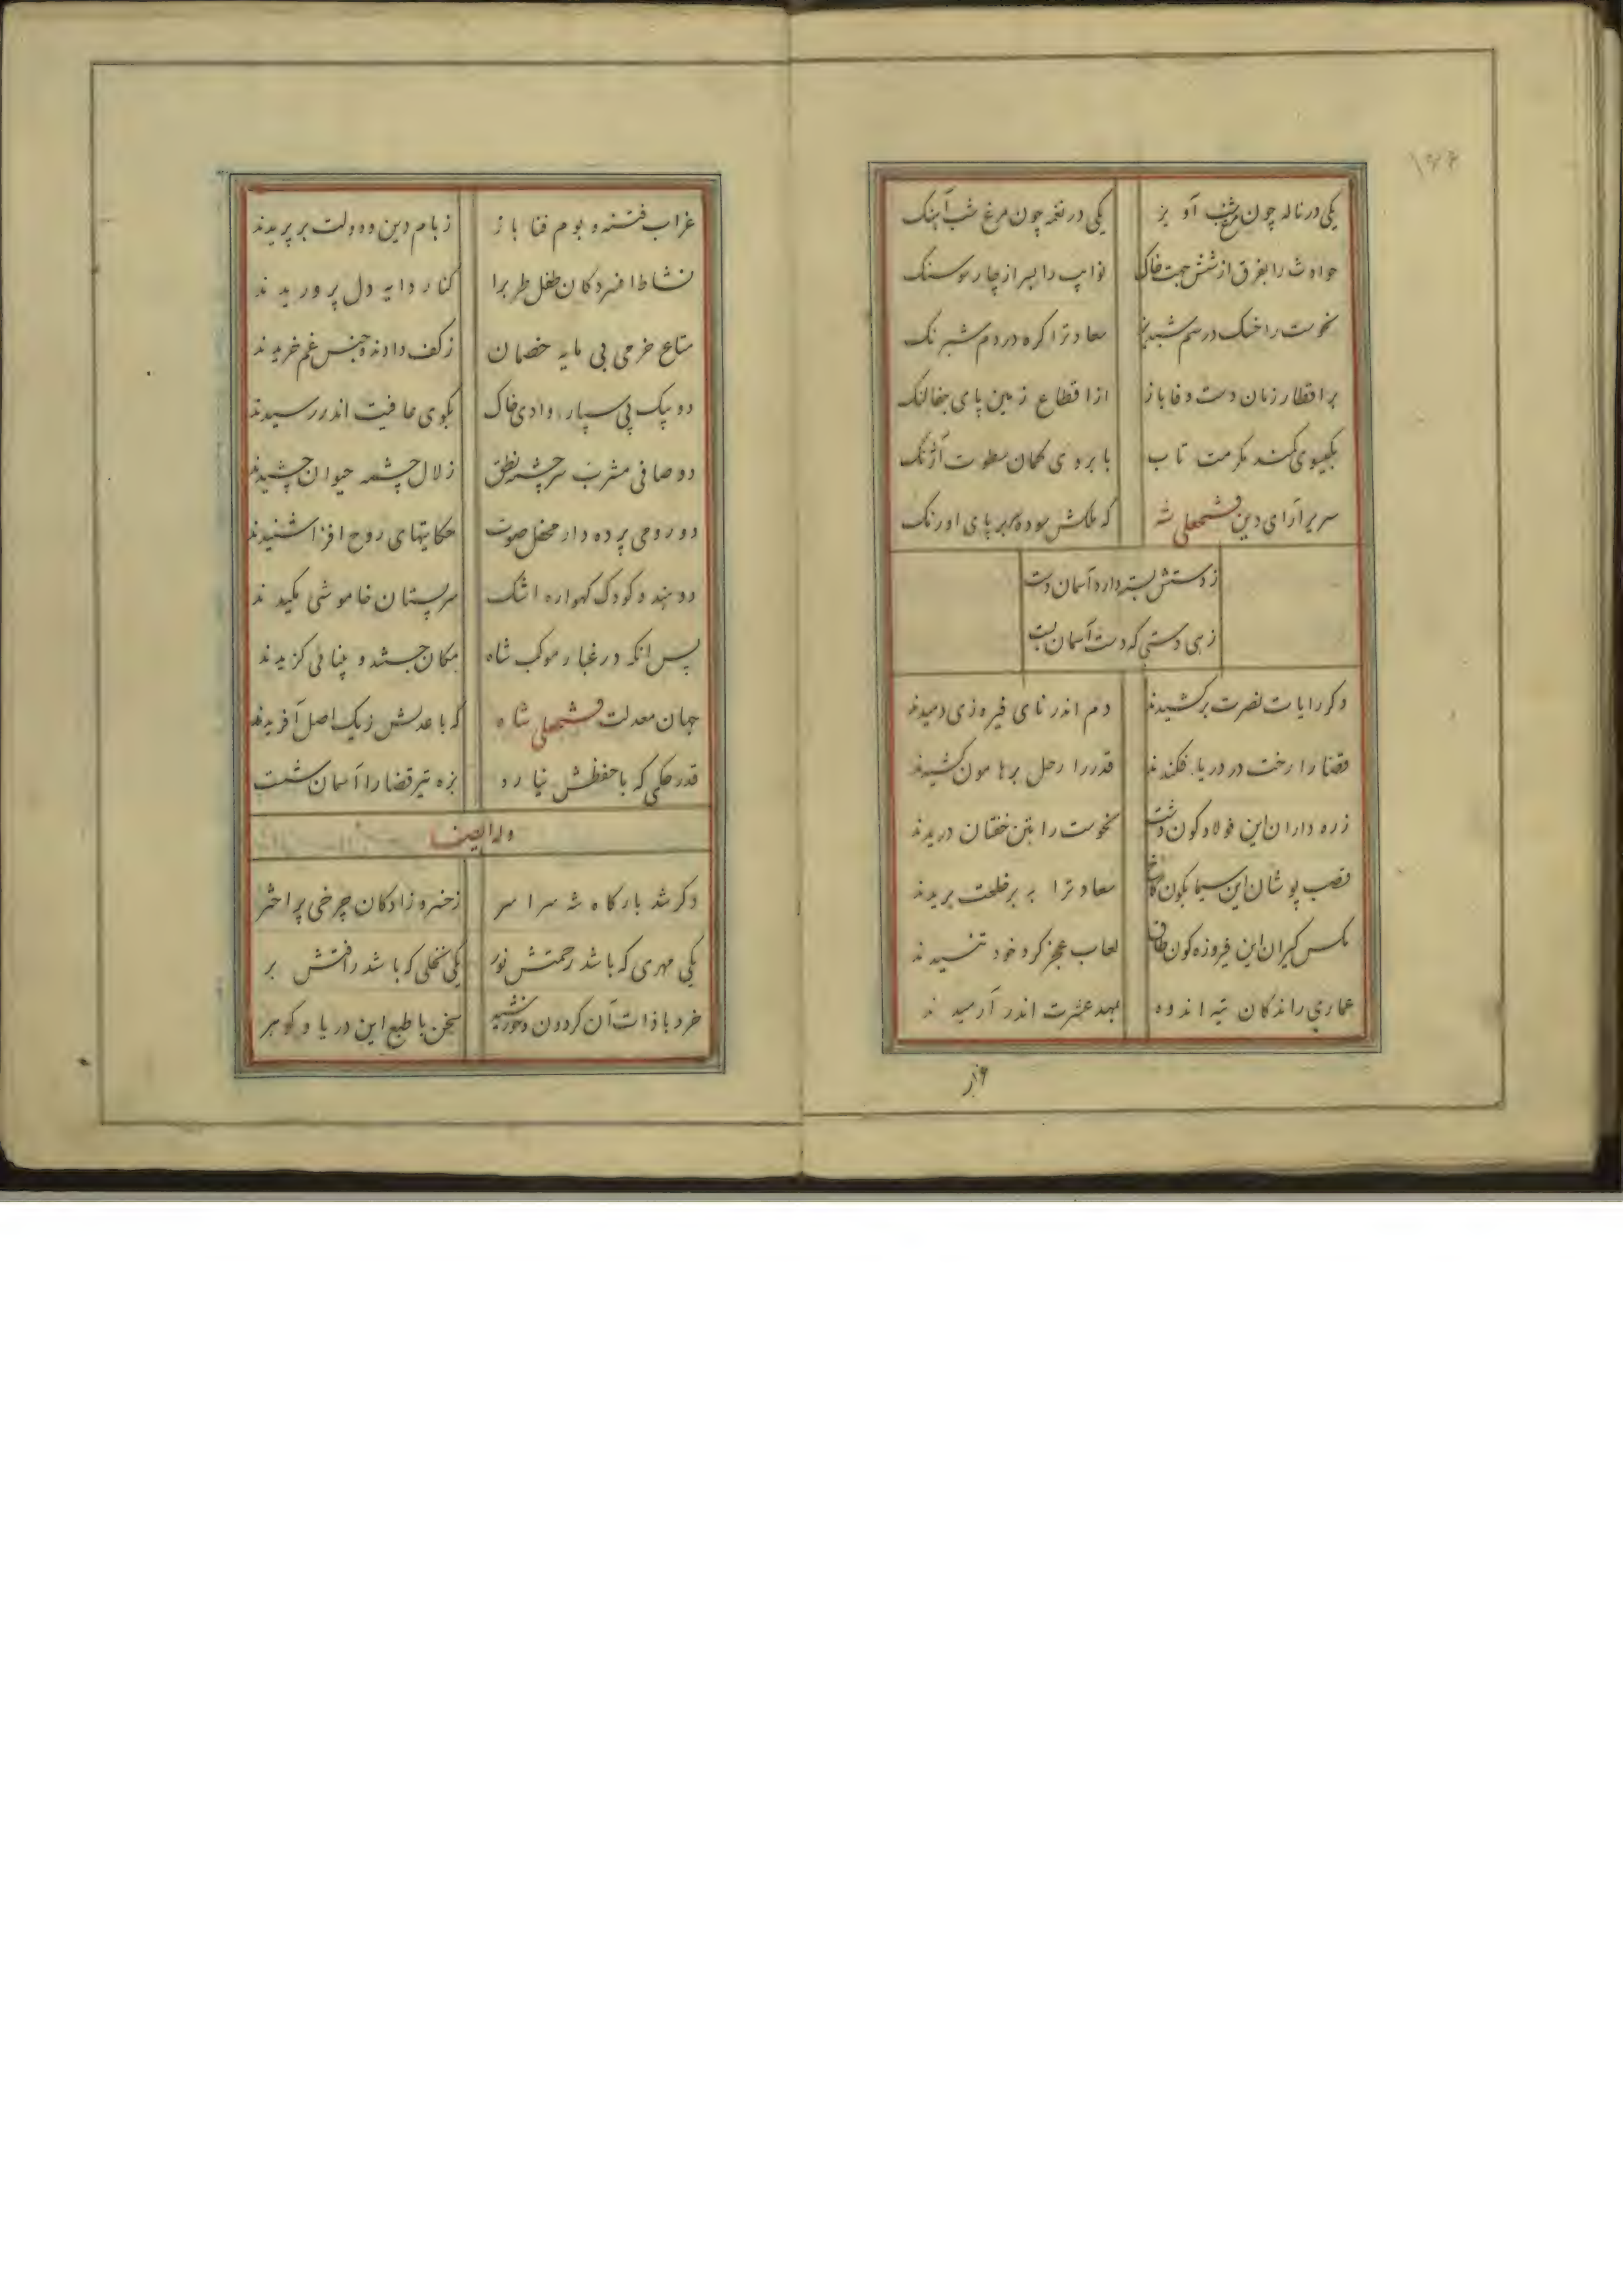 یکی در ناله چون مرغ شب آویز یکی در نغمه چون مرغ شب آهنک
حوادث را بفرق از شش جهت خاک نوایب را بسر از چار سو سنک
نحوست را خسک در سم شبدیز سعادترا کره در دم شبرنک
بر اقطار زمان دست وفا باز از اقطاع زمین پای جفا لنک
بکیسوی کمند مکرمت تاب بابروی کمان سطوت آژنک
سریر آرای دین فتحعلی شه که ملکش سوده بر پای اورنک
ز دستش بسته دارد آسمان دست
زهی دستی که دست آسمان بست
دکر رایات نصرت برکشیدند دم اندر نای فیروزی دمیدند
قضا را رخت در دریا فکندند قدر را رحل بر هامون کشیدند
زره داران این فولادکون دشت نحوست را بتن خفتان دریدند
قصب پوشان این سیمابکون کاخ سعادترا به بر خلعت بریدند
مکس کیران این فیروزه کون طاق لعاب عجز کرد خود تنیدند
عماری راندکان تیه اندوه بمهد عشرت اندر آرمیدند
غراب فتنه و بوم فنا باز ز بام دین و دولت بر پریدند
نشاط افسردکان طفل طربرا کنار دایه دل پروریدند
متاع خرمی بی مایه خصمان ز کف دادند و جنس غم خریدند
دو پیک پی سپار وادی خاک بکوی عافیت اندر رسیدند
دو صافی مشرب سرچشمه نطق زلال چشمه حیوان چشیدند
دو رومی پرده دار محفل صوت حکایتهای روح افزا شنیدند
دو هندو کودک کهواره اشک سر پستان خاموشی مکیدند
پس آنکه در غبار موکب شاه مکان جستند و بینائی کزیدند
جهان معدلت فتحعلی شاه که با عدلش ز یک اصل آفریدند
قدر حکمی که با حفظش نیارد بزه تیر قضا را آسمان شست
وله ایضا
دکر شد بارکاه شه سراسر ز خسرو زادکان چرخی پر اختر
یکی مهری که باشد رحمتش نور یکی نخلی که باشد رافتش بر
خرد با ذات آن کردون و خورشید سخن با طبع این دریا و کوهر